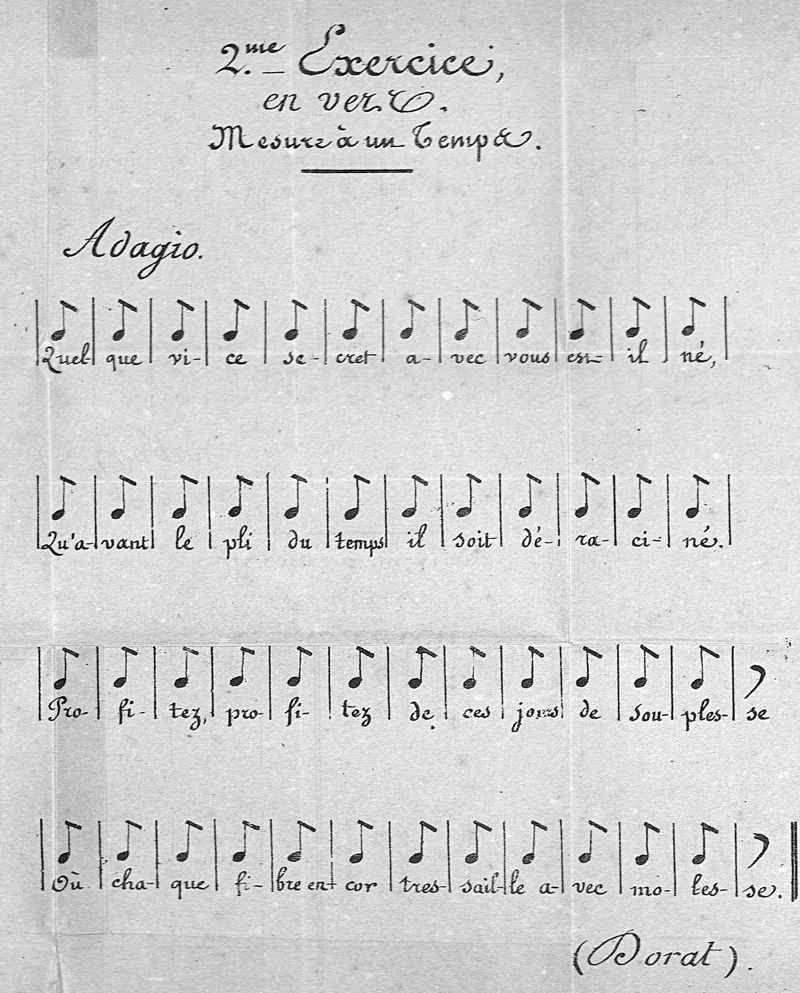 2.me Exercice,
en vers.
Mesure à un Temps.
Adagio.
Quel- que vi- ce se- cret a- vec vous est- il né,
Qu'a- vant le pli du temps il soit dé- ra- ci- né.
Pro- fi- tez, pro- fi- tez de ces jours de sou- ples- se
Où cha- que fi- bre en- cor tres- sail- le a- vec mo- les- se.
(Dorat).